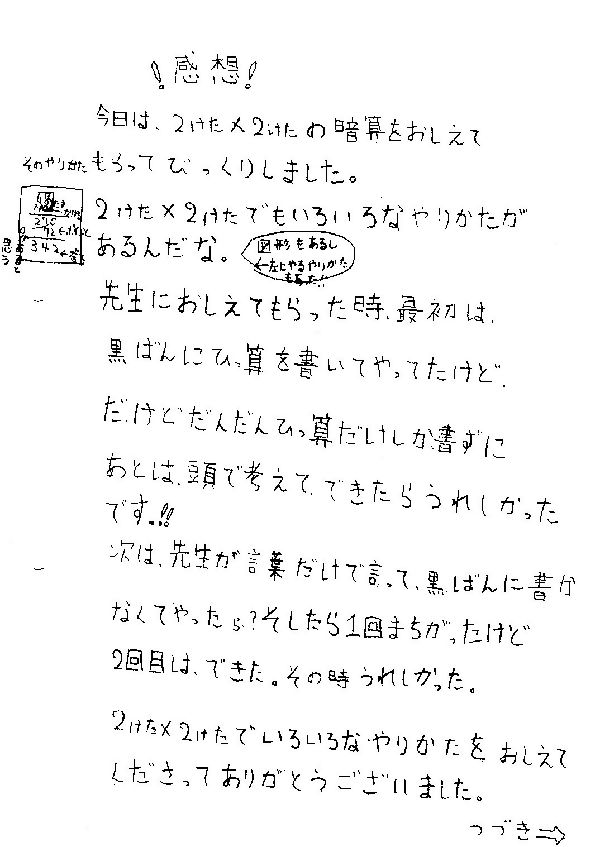 !感想!
今日は、2けた×2けたの暗算をおしえて
そのやりかた
もらってびっくりしました。
2けた×2けたでもいろいろなやりかたが
あるんだな。
図形もあるし
←左にやるやりかた
もあった!!
342
思う
先生におしえてもらった時、最初は、
黒ばんにひっ算を書いてやってたけど、
だけどだんだんひっ算だけしか書ずに
あとは、頭で考えて、できたらうれしかった
です。!!
次は、先生が言葉だけで言って、黒ばんに書か
なくてやったら?そしたら1回まちがったけど
2回目は、できた。その時うれしかった。
2けた×2けたでいろいろなやりかたをおしえて
くださってありがとうございました。
つづき⇒